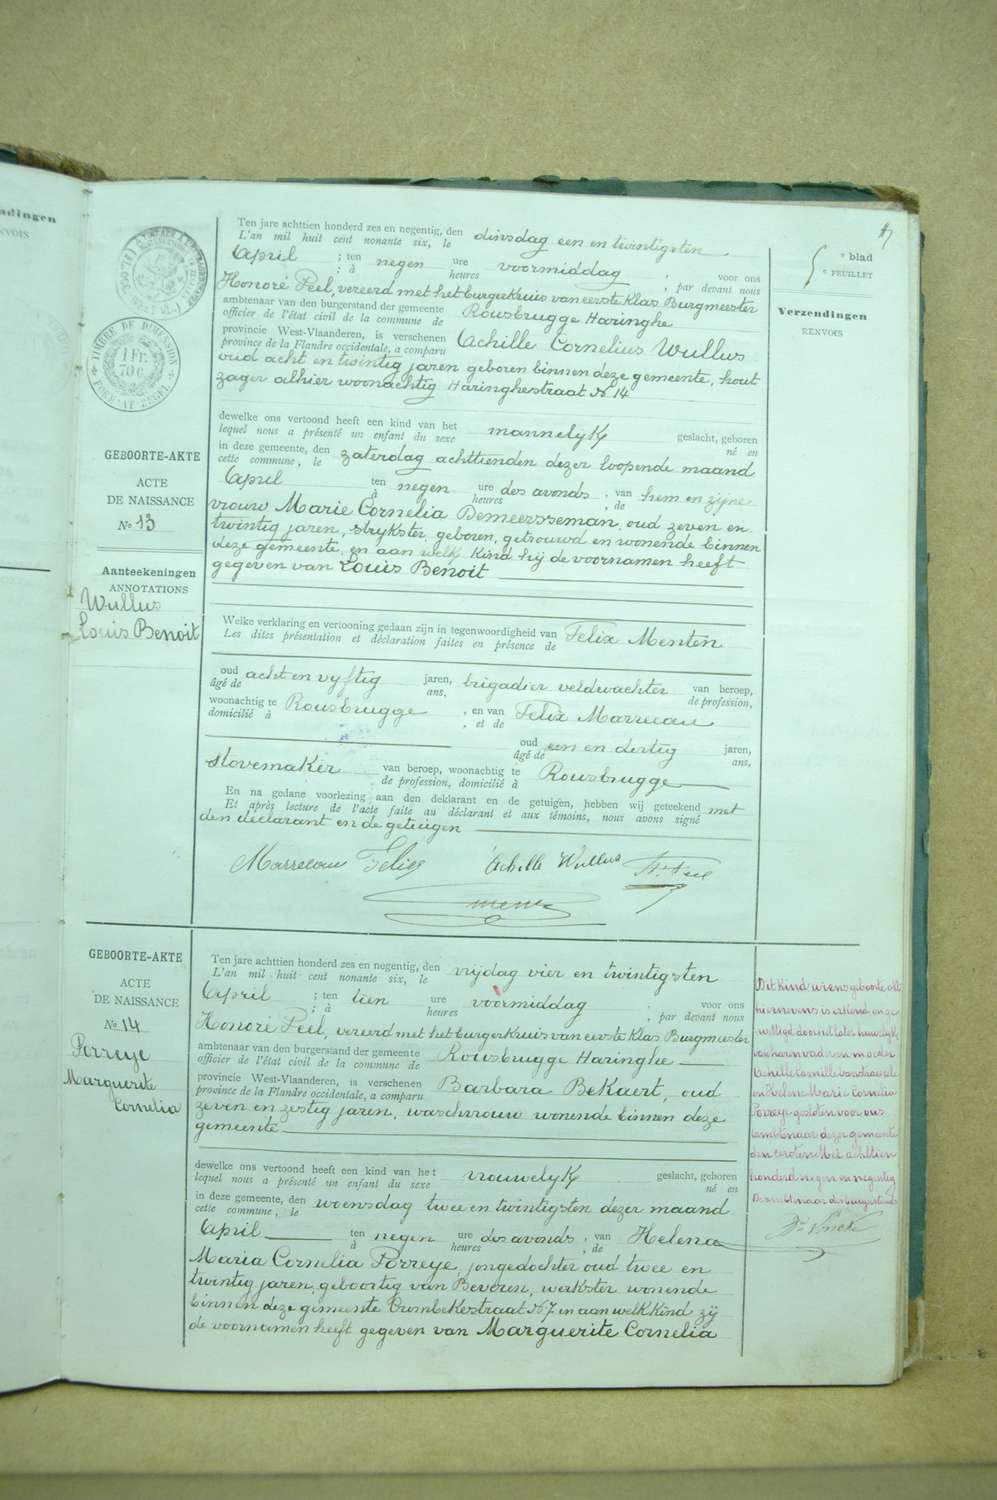 ndingen
RENVOIS
TIMBRE DE DIMENSION
1 Fr.
70 c.
FORMAAT ZEGEL
5e blad
e FEUILLET
Verzendingen
RENVOIS
GEBOORTE-AKTE
ACTE
DE NAISSANCE
No 13
Aanteekeningen
ANNOTATIONS
Wullus
Louis Benoit
Ten jare achttien honderd zes en negentig, den dinsdag een en twintigsten
L'an mil huit cent nonante six, le
April ; ten negen ure voormiddag , voor ons
; à heures , par devant nous
Honoré Peel, vereerd met het burgerkruis van eerste klas Burgmeester
ambtenaar van den burgerstand der gemeente Rousbrugge Haringhe
officier de l'état civil de la commune de
provincie West-Vlaanderen, is verschenen Achille Cornelius Wullus
province de la Flandre occidentale, a comparu
oud acht en twintig jaren geboren binnen deze gemeente, hout
zager alhier woonachtig Haringhestraat No 14
dewelke ons vertoond heeft een kind van het mannelyk geslacht, geboren
lequel nous a présenté un enfant du sexe né en
in deze gemeente, den zaterdag achttienden dezer loopende maand
cette commune, le
April ten negen ure des avonds , van hem en zijne
à heures , de
vrouw Marie Cornelia Demeersseman, oud zeven en
twintig jaren, strykster, geboren, getrouwd en wonende binnen
deze gemeente, en aan welk kind hij de voornamen heeft
gegeven van Louis Benoit
Welke verklaring en vertooning gedaan zijn in tegenwoordigheid van Felix Menten
Les dites présentation et déclaration faites en présence de
oud acht en vyftig jaren, brigadier veldwachter van beroep,
âgé de ans, de profession,
woonachtig te Rousbrugge , en van Felix Marrecau
domicilié à , et de
oud een en dertig jaren,
âgé de ans,
stovemaker van beroep, woonachtig te Rousbrugge
de profession, domicilié à
En na gedane voorlezing aan den deklarant en de getuigen, hebben wij geteekend met
Et après lecture de l'acte faite au déclarant et aux témoins, nous avons signé
den declarant en de getuigen
Marrecau Felix Achille Wullus Hre Peel
GEBOORTE-AKTE
ACTE
DE NAISSANCE
No 14
Porreye
Marguerite
Cornelia
Ten jare achttien honderd zes en negentig, den vrijdag vier en twintigsten
L'an mil huit cent nonante six, le
April ; ten tien ure voormiddag , voor ons
; à heures , par devant nous
Honoré Peel, vereerd met het burgerkruis van eerste klas Burgmeester
ambtenaar van den burgerstand der gemeente Rousbrugge Haringhe
officier de l'état civil de la commune de
provincie West-Vlaanderen, is verschenen Barbara Bekaert, oud
province de la Flandre occidentale, a comparu
zeven en zestig jaren, waschvrouw wonende binnen deze
gemeente
dewelke ons vertoond heeft een kind van het vrouwelyk geslacht, geboren
lequel nous a présenté un enfant du sexe né en
in deze gemeente, den woensdag twee en twintigsten dezer maand
cette commune, le
April ten negen ure des avonds , van Helena
à heures , de
Maria Cornelia Porreye, jongedochter oud twee en
twintig jaren, geboortig van Beveren, werkster wonende
binnen deze gemeente Crombekestraat No 7 en aan welk kind zij
de voornamen heeft gegeven van Marguerite Cornelia
Dit kind wiens geboorte akt
hiernevens is erkend en ge
wettigd door het later huwelijk
van haren vader en moeder
Achille Cornille
en Helene Marie Cornelia
Porreye gesloten voor ons
ambtenaar dezer gemeente
den Mei achttien
honderd negen en negentig
De ambtenaar der burgerstand